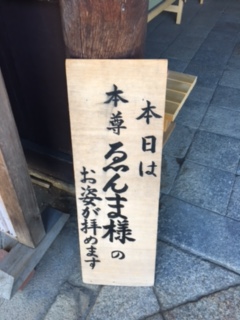 本日は
本尊ゑんま様の
お姿が拝めます